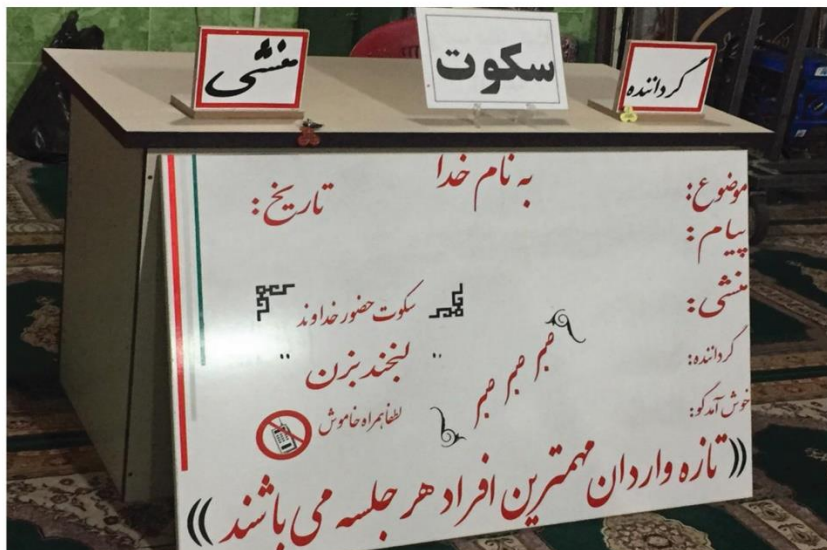 گرداننده
سکوت
منشی
به نام خدا
موضوع:
تاریخ:
پیام:
منشی:
سکوت حضور خداوند
گرداننده:
لبخند بزن
صبر صبر صبر
خوش آمدگو:
لطفا همراه خاموش
((تازه واردان مهمترین افراد هر جلسه می باشند))